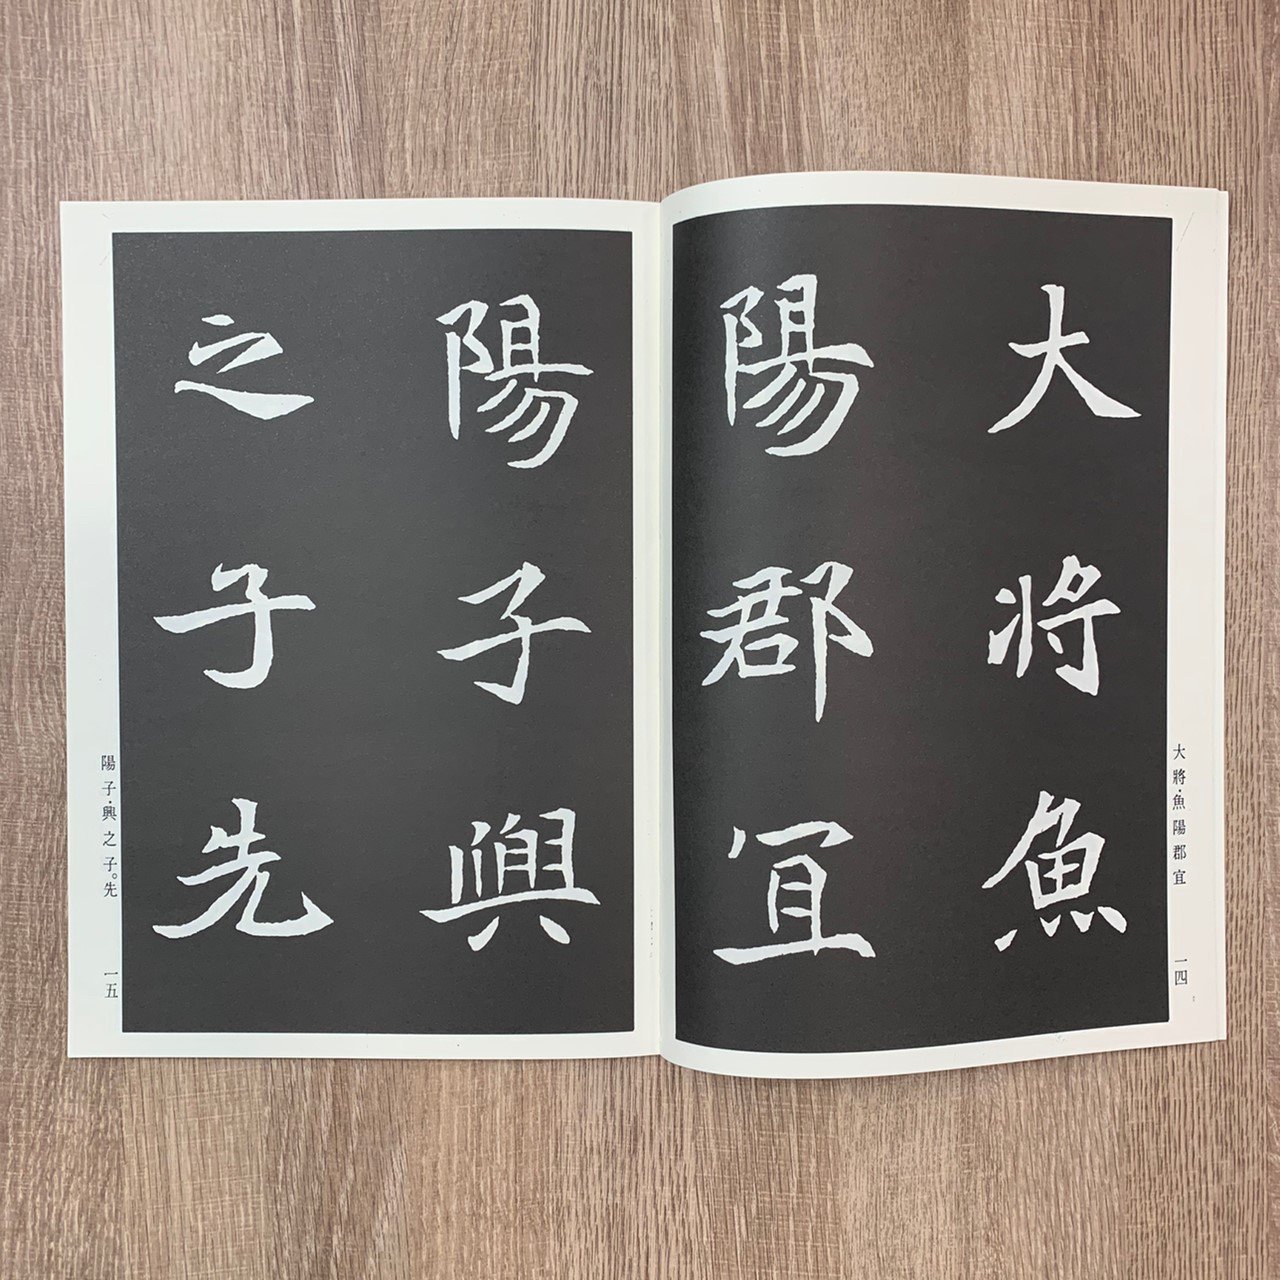 大將魚
陽郡宜
大將·魚陽郡宜
一四
陽子興
之子先
陽子·興之子。先
一五